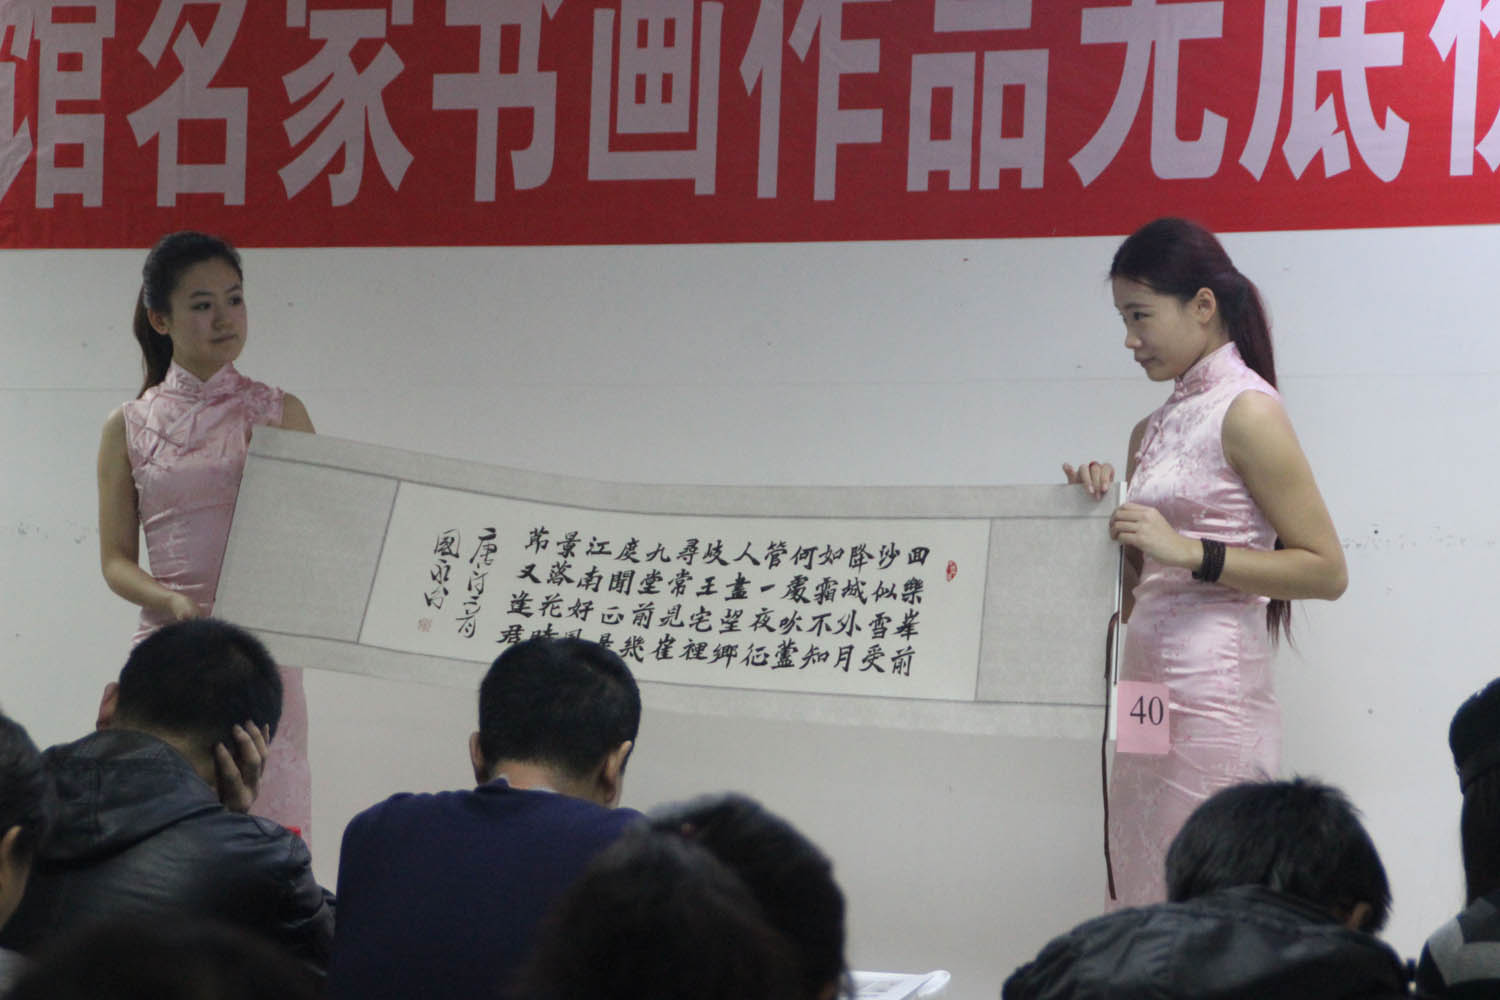 馆名家书画作品无底
回樂峯前
沙似雪受
降城外月
如霜不知
何處吹蘆
管一夜征
人盡望鄉
岐王宅裡
尋常見崔
九堂前幾
度聞正是
江南好風
景落花時
节又逢君
唐詩二首
國永
40